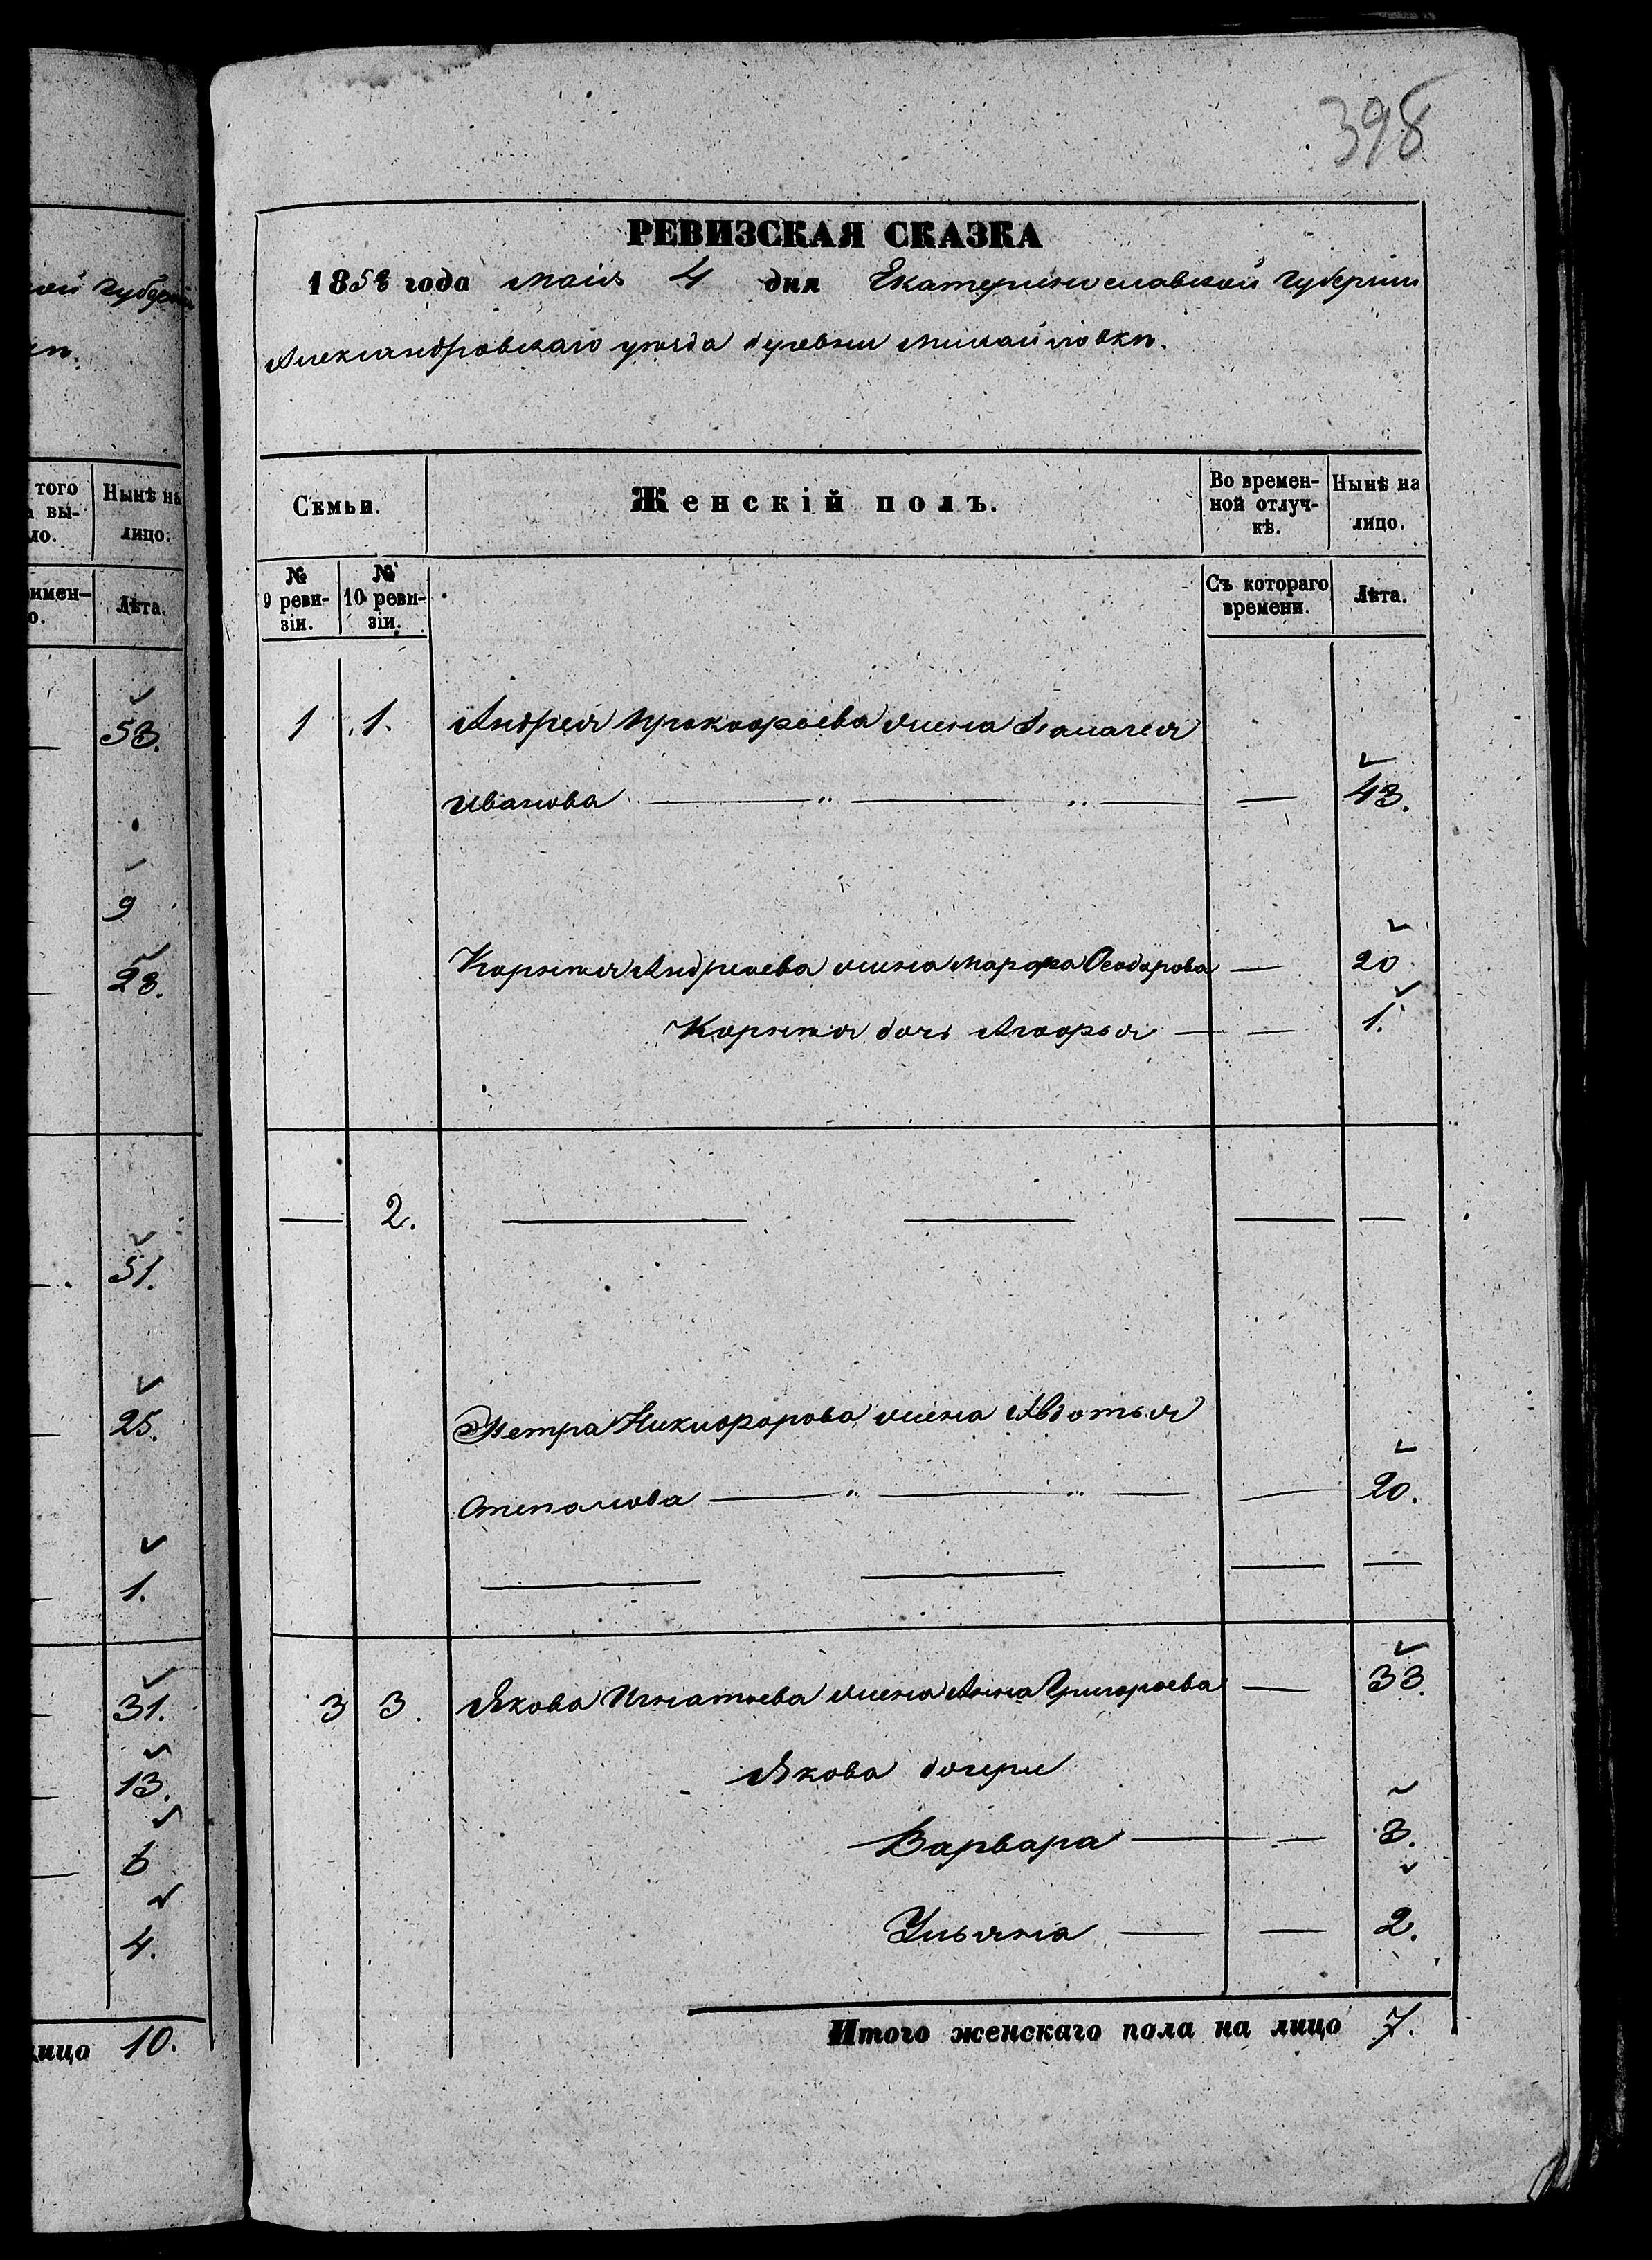 398
РЕВИЗСКАЯ СКАЗКА
1858 года маія 4 дня Екатеринославской губерніи
Александровскаго уѣзда деревни Михайловки.
Семьи.
Женскій полъ.
Во времен-
ной отлуч-
кѣ.
Нынѣ на
лицо.
№
9 реви-
зіи.
№
10 реви-
зіи.
Съ котораго
времени.
Лѣта.
1 1. Андрея Прокофьева жена
Иванова — 43.
Корнея Андреева жена Марфа Феодорова — 20
Корнея дочь Агафья — 1.
— 2.
Петра Никифорова жена Авдотья
Степанова — 20.
3 3. Якова Игнатьева жена Анна Григорьева — 33.
Якова дочери
Варвара — 3.
Ульяна — 2.
Итого женскаго пола на лицо 7.
ой губерніи
ки.
того
вы-
ло.
Нынѣ на
лицо.
имен-
о.
Лѣта.
53.
9
23.
51.
25.
1.
31.
13.
6
4.
лицо 10.